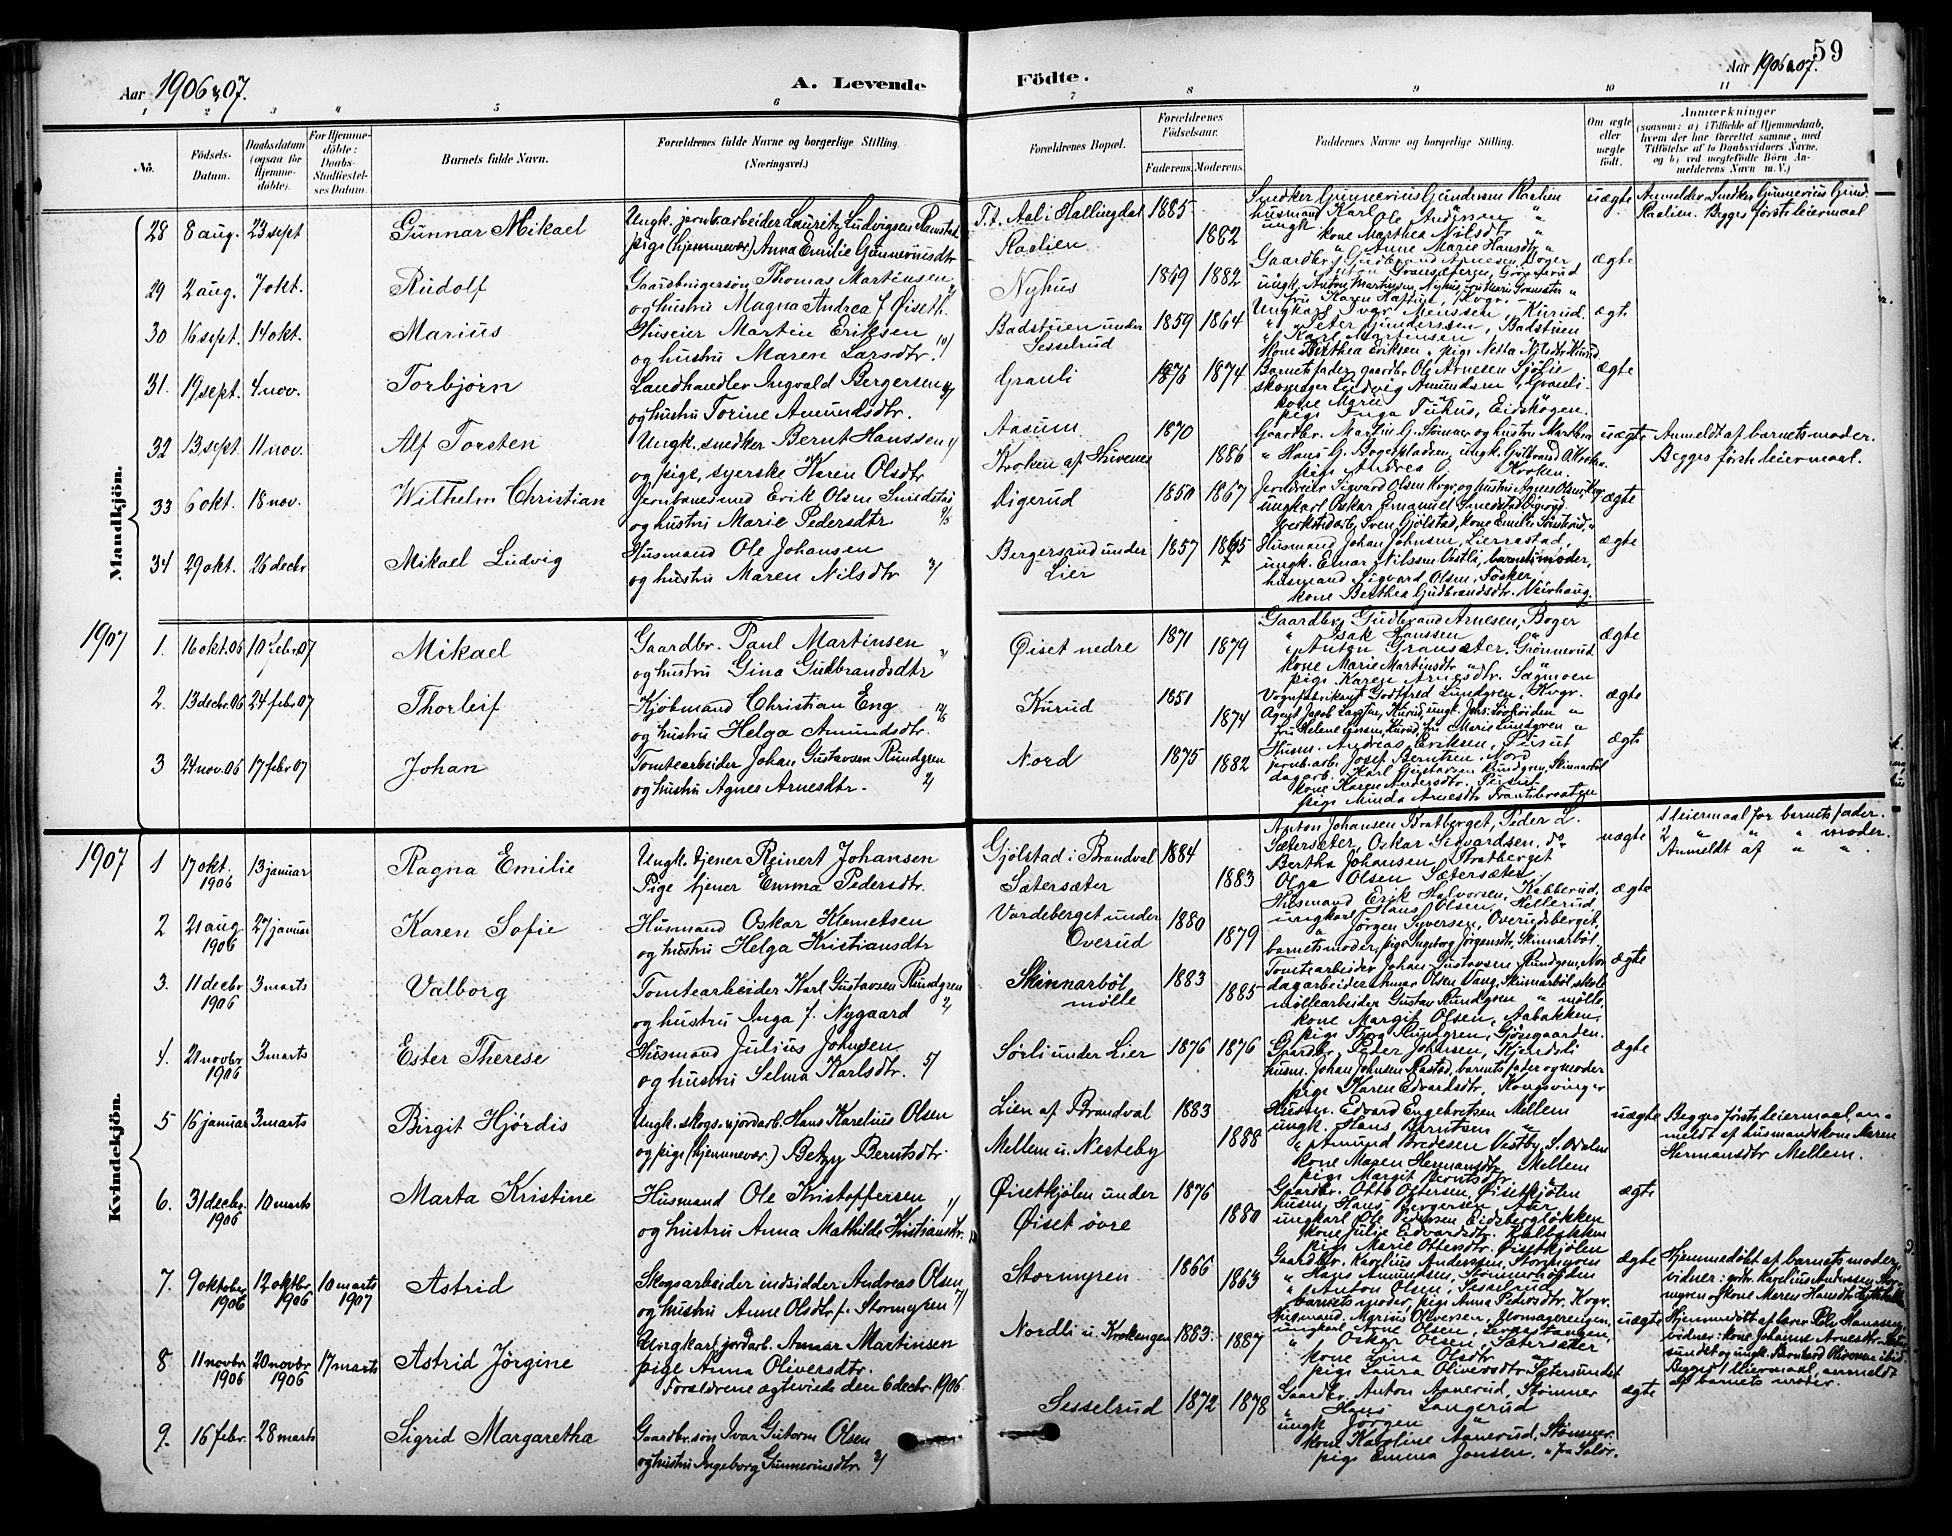 59
Aar 1906 & 07.
A. Levende
Födte.
Aar 1906 & 07.
1 2 3 4 5 6 7 8 9 10 11
No.
Födsels-Datum.
Daabsdatum (ogsaa for Hjemmedøbte).
For Hjemmedøbte: Daabs-Stadfæstelses Datum.
Barnets fulde Navn.
Forældrenes fulde Navne og borgerlige Stilling. (Næringsvei.)
Forældrenes Bopæl.
Forældrenes Födselsaar.
Faderens. Moderens.
Faddernes Navne og borgerlige Stilling.
Om ægte eller uægte födt.
Anmærkninger
(saasom: a) i Tilfælde af Hjemmedaab, hvem der har forrettet samme, med Tilföielse af to Daabsvidners Navne, og b) ved uægtefödte Börn Anmelderens Navn m. V.)
Mandkjön.
28 8 aug. 23 sept Gunnar Mikael
Ungk. jernb.arbeider Lauritz Ludvigsen Ramstad
pige (hjemmevær.) Anna Emilie Gunneriusdtr
F.t. Aal i Hallingdal 1885
Raalien 1882
Snedker Gunnerius Gundersen Raalien
husmand Karl " "
ungk Ole Andersen "
kone Marthea Nilsdtr "
" Anne Marie Hansdtr "
uægte
Anmelder Snedker Gunnerius Gund.
Raalien. Begges første leiermaal
29 2 aug. 7 okt. Rudolf
Gaardbrugersøn Thomas Martinsen
og hustru Magna Andrea f. Øiseth
Nyhus 1859 1882
Gaardbr. Gudbrand Arnesen, Boger
" Anton Gransæteren, Grønnerud
ungk. Anton Martinsen Nyhus
ægte
30 16 sept. 14 okt. Marius
Huseier Martin Eriksen
og hustru Maren Larsdtr.
Badstuen under Sesselrud 1859 1864
" Peter Gundersen, Badstuen
" Karl Martensen
Kone Berthea Eriksen
ægte
31. 19 sept. 4 nov. Torbjørn
Landhandler Ingvald Bergersen
og hustru Torine Amundsdtr.
Granli 1875 1874
Barnets fader, gaardbr. Ole Arnesen Sjølie
skomager Ludvig Amundsen, Granli
kone Marie "
pige Inga Tuhus, Eidskogen.
ægte
32 13 sept 11 nov. Alf Torsten
Ungk. snedker Bernt Hanssen
og pige, syerske Karen Olsdtr
Aasum 1870
Kroken af Huvenes 1886
Gaardbr. Martin G. Stømner og hustru Marthea
pige Andrea Kroken.
uægte
Anmeldt af barnets moder.
Begges første leiermaal.
33 6 okt. 18 nov. Wilhelm Christian
Jernbanesmed Erik Olsen Smedstad
og hustru Marie Pedersdtr
Digerud 1850 1867
Jerndreier Sigvard Olsen Kvgr. og hustru Agnes Olsen Kvgr.
ungkarl Oskar Emanuel Smedstad Digerud
Verkstedarb. Sven Gjølstad, kone Emelie Sønsterud
ægte
34 29 okt. 26 decbr Mikael Ludvig
Husmand Ole Johansen
og hustru Maren Nilsdtr
Bergersrud under Lier 1857 1865
Husmand Johan Johnsen, Lierrastad,
ungk. Einar Nilssen Vestli, barnets moder,
husmand Sigvard Olsen, Fösker,
kone Berthea Gudbrandsdtr. Veirhaug.
ægte
1907
1. 16 okt. 06 10 febr 07 Mikael
Gaardbr. Paul Martinsen
og hustru Gina Gudbrandsdtr
Øiset nedre 1871 1879
Gaardbrg. Gudbrand Arnesen, Boger
" Isak Hanssen "
" Anton Gransæter, Grønnerud
kone Marie Martinsdtr "
pige Karen Arnesdtr. Sagmoen
ægte
2. 13 decbr. 06 24 febr 07 Thorleif
Kjöbmand Christian Eng
og hustru Helga Amundsdtr.
Kurud 1851 1874
Vognfabrikant Godtfred Lundgren, Kvgr.
Agent Jacob Larsen, Kurud,
fru Helene Larsen, Kurud, fru Marie Lundgren "
ægte
3 24 nov. 06 17 febr 07 Johan
Tomtearbeider Johan Gustavsen Rundgren
og hustru Agnes Arnesdtr.
Nord 1875 1882
Husm. Andreas Eriksen, Pirsut
jernb.arb. Josef Berntsen, Nord
dagarb. Karl Gustavsen Rundgren, Skinnarbøl
kone Karen Andersdtr. Pirsut
pige Minda Arnesdtr Frantsbraaten
ægte
Kvindekjön.
1907
1 17 okt. 1906 13 januar Ragna Emilie
Ungk. tjener Reinert Johansen
Pige tjener Emma Pedersdtr.
Gjølstad i Brandval 1884
Sætersæter 1883
Anton Johansen Bratberget, Peder L.
Sætersæter, Oskar Sigvardsen, do
Bertha Johansen Bratberget
Olga Olsen Sætersæter
uægte
1 leiermaal for barnets fader.
2 " " " moder.
Anmeldt af " ".
2 21 aug 1906 27 januar Karen Sofie
Husmand Oskar Klemetsen
og hustru Helga Kristiansdtr
Vardeberget under Overud 1880 1879
Husmand Erik Halvorsen, Kabberud,
ungkarl Hans Olsen, Hellerud,
" Jørgen Syversen, Overudsberget,
barnets moder, pige Ingeborg Jørgensdtr, Skinnarbøl,
ægte
3. 11 decbr 1906 3 marts Valborg
Tomtearbeider Karl Gustavsen Rundgren
og hustru Inga f. Nygaard
Skinnarböl mölle 1883 1885
Tomtearbeider Johan Gustavsen Rundgren, Nor
dagarbeider Annar Olsen Vang, Skinnarböl skole
möllearbeider Gustav Rundgren " mölle,
kone Margit Olsen, Aabakken,
pige Thora Rundgren, Gjøsegaarden.
ægte
4. 21 novbr 1906 3 marts Ester Therese
Husmand Julius Johnsen
og hustru Selma Karlsdtr.
Sørli under Lier 1876 1876
Gaardbr. Peder Johansen, Kjendsli
husm. Johan Johnsen Rastad, barnets fader og moder
pige Karen Edvardsdtr, Kongsvinger
ægte
5 16 januar 3 marts Birgit Hjördis
Ungk. skogs- & jordarb. Hans Karelius Olsen
og pige (hjemmevær.) Betzy Berntsdtr.
Lien af Brandval 1883
Mellem u. Nesteby 1888
Husm. Edvard Engebretsen Mellem
ungk. Hans Berntsen "
" Amund Bredesen Vestby, S. Odalen
kone Maren Hermansdtr Mellem
pige Margit Berntsdtr "
uægte
Begges første leiermaal, an-
meldt af husmandskone Maren
Hermansdtr Mellem.
6. 31 decbr. 1906 10 marts Marta Kristine
Husmand Ole Kristoffersen
og hustru Anna Mathilde Kristiansdtr.
Øisetkjölen under Øiset övre 1876 1880
Gaardbr. Otto Ottersen, Øisetkjølen
husm. Hans Bergersen Aar
ungkarl Ole Pedersen Eidsbergløkken
kone Julie Edvardsdtr. Kalbakken
pige Marie Ottersdtr. Øisetkjölen
ægte
7. 9 oktober 1906 12 oktbr 1906 10 marts 1907 Astrid
Skogsarbeider indsidder Andreas Olsen
og hustru Anne Olsdtr f. Stormyren
Stormyren 1866 1863
Gaardbr. Karelius Andersen, Stormyren
" Hans Amundsen, Stømnerhöiden
" Anton Olsen, Sesselrud
barnets moder, pige Anna Pedersdtr. Kvgr.
ægte
Hjemmedöbt af barnets moder,
vidner: grbr. Karelius Anderssen Stor-
myren og kone Maren Hansdtr
8 11 novbr 1906 20 novbr 1906 17 marts Astrid Jörgine
Ungkarl jordarb. Annar Martinsen
pige Anna Oliversdtr.
Forældrene ægteviede den 6 decbr. 1906
Nordli u. Krokengen 1883. 1887
Husmand, Marius Oliversen,
ungkarl Arne Olsen,
" Oskar Olsen Sætersæter
kone Lina Olsdtr "
pige Laura Oliversdtr Sætersundet
uægte
Hjemmedöbt af lærer Ole Hanssen,
vidner: kone Johanne Arnesdtr. Sæter-
sundet og ungk. Bernhard Oliversen ibid.
Begges 1 leiermaal, anmeldt
af barnets moder.
9. 16 febr. 28 marts Sigrid Margaretha
Gaardbr.søn Ivar Gutorm Olsen
og hustru Ingeborg Gunneriusdtr
Sesselrud 1872 1878
Gaardbr. Anton Aanerud, Stömner
" Hans Langerud
ungk Jörgen "
kone Karoline Aanerud, Stömner.
pige Emma Jonsen, " fra Solør.
ægte